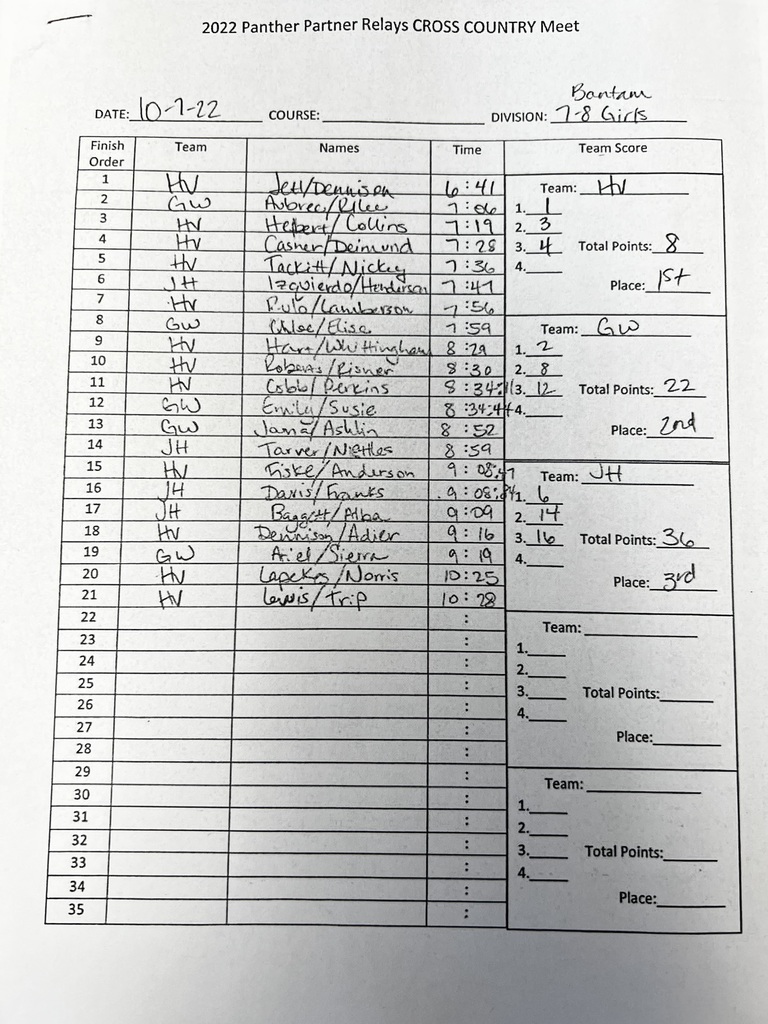 2022 Panther Partner Relays CROSS COUNTRY Meet
Bantam
DATE: 10-7-22 COURSE: DIVISION: 7-8 Girls
Finish Order Team Names Time Team Score
1 HV Jett/Dennison 6:41
2 GW Aubree/Rilee 7:06
3 HV Hebert/Collins 7:19
4 HV Casner/Deimund 7:28
5 HV Tackitt/Nickey 7:36
6 JH Izquierdo/Henderson 7:47
7 HV Rulo/Lamberson 7:56
8 GW Chloe/Elise 7:59
9 HV Hart/Whittingham 8:29
10 HV Roberts/Risner 8:30
11 HV Cobb/Perkins 8:34:11
12 GW Emily/Susie 8:34:44
13 GW Jama/Ashlin 8:52
14 JH Tarver/Niettles 8:59
15 HV Fiske/Anderson 9:08:47
16 JH Davis/Franks 9:08:84
17 JH Baggett/Alba 9:09
18 HV Dennison/Adier 9:16
19 GW Ariel/Sierra 9:19
20 HV /Norris 10:25
21 HV Lewis/Trip 10:28
22 :
23 :
24 :
25 :
26 :
27 :
28 :
29 :
30 :
31 :
32 :
33 :
34 :
35 :
Team: HV
1. 1
2. 3
3. 4 Total Points: 8
4.
Place: 1st
Team: GW
1. 2
2. 8
3. 12 Total Points: 22
4.
Place: 2nd
Team: JH
1. 6
2. 14
3. 16 Total Points: 36
4.
Place: 3rd
Team:
1.
2.
3. Total Points:
4.
Place:
Team:
1.
2.
3. Total Points:
4.
Place: